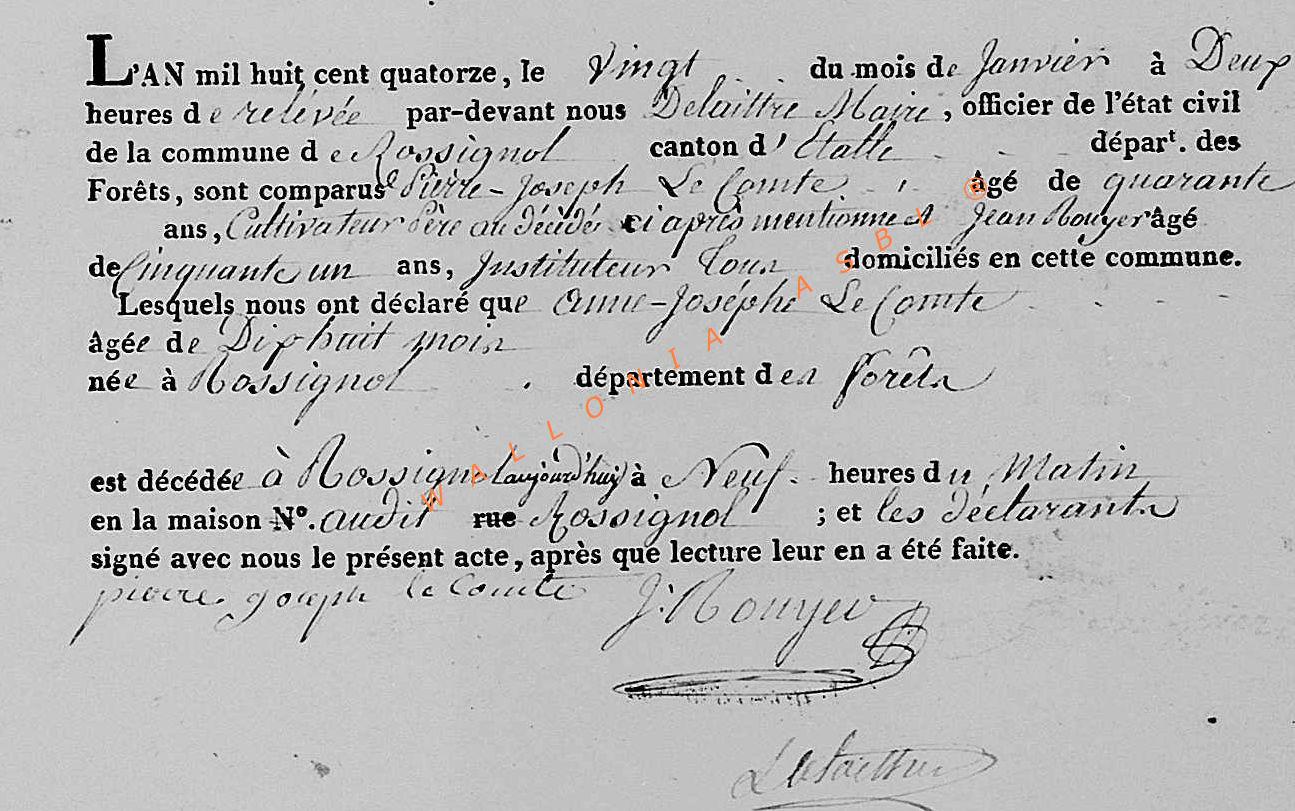 L'AN mil huit cent quatorze, le Vingt du mois de Janvier à Deux
heures de relévée par-devant nous Delaittre Maire, officier de l'état civil
de la commune de Rossignol canton d'Etalle dépar^t. des
Forêts, sont comparus Pierre-Joseph Le Comte âgé de quarante
ans, Cultivateur Père au décédés ci après mentionne et Jean Rouyer âgé
de Cinquante un ans, Instituteur Tous domiciliés en cette commune.
Lesquels nous ont déclaré que Anne-Joséphe Le Comte
âgée de Dix huit mois
née à Rossignol département des forêts
est décédée à Rossignol aujourd'huy à Neuf heures du Matin
en la maison N°. audit rue Rossignol ; et les déclarants
signé avec nous le présent acte, après que lecture leur en a été faite.
pierre joseph le Comte J: Rouyer
Delaittre
WALLONIA ASBL ©